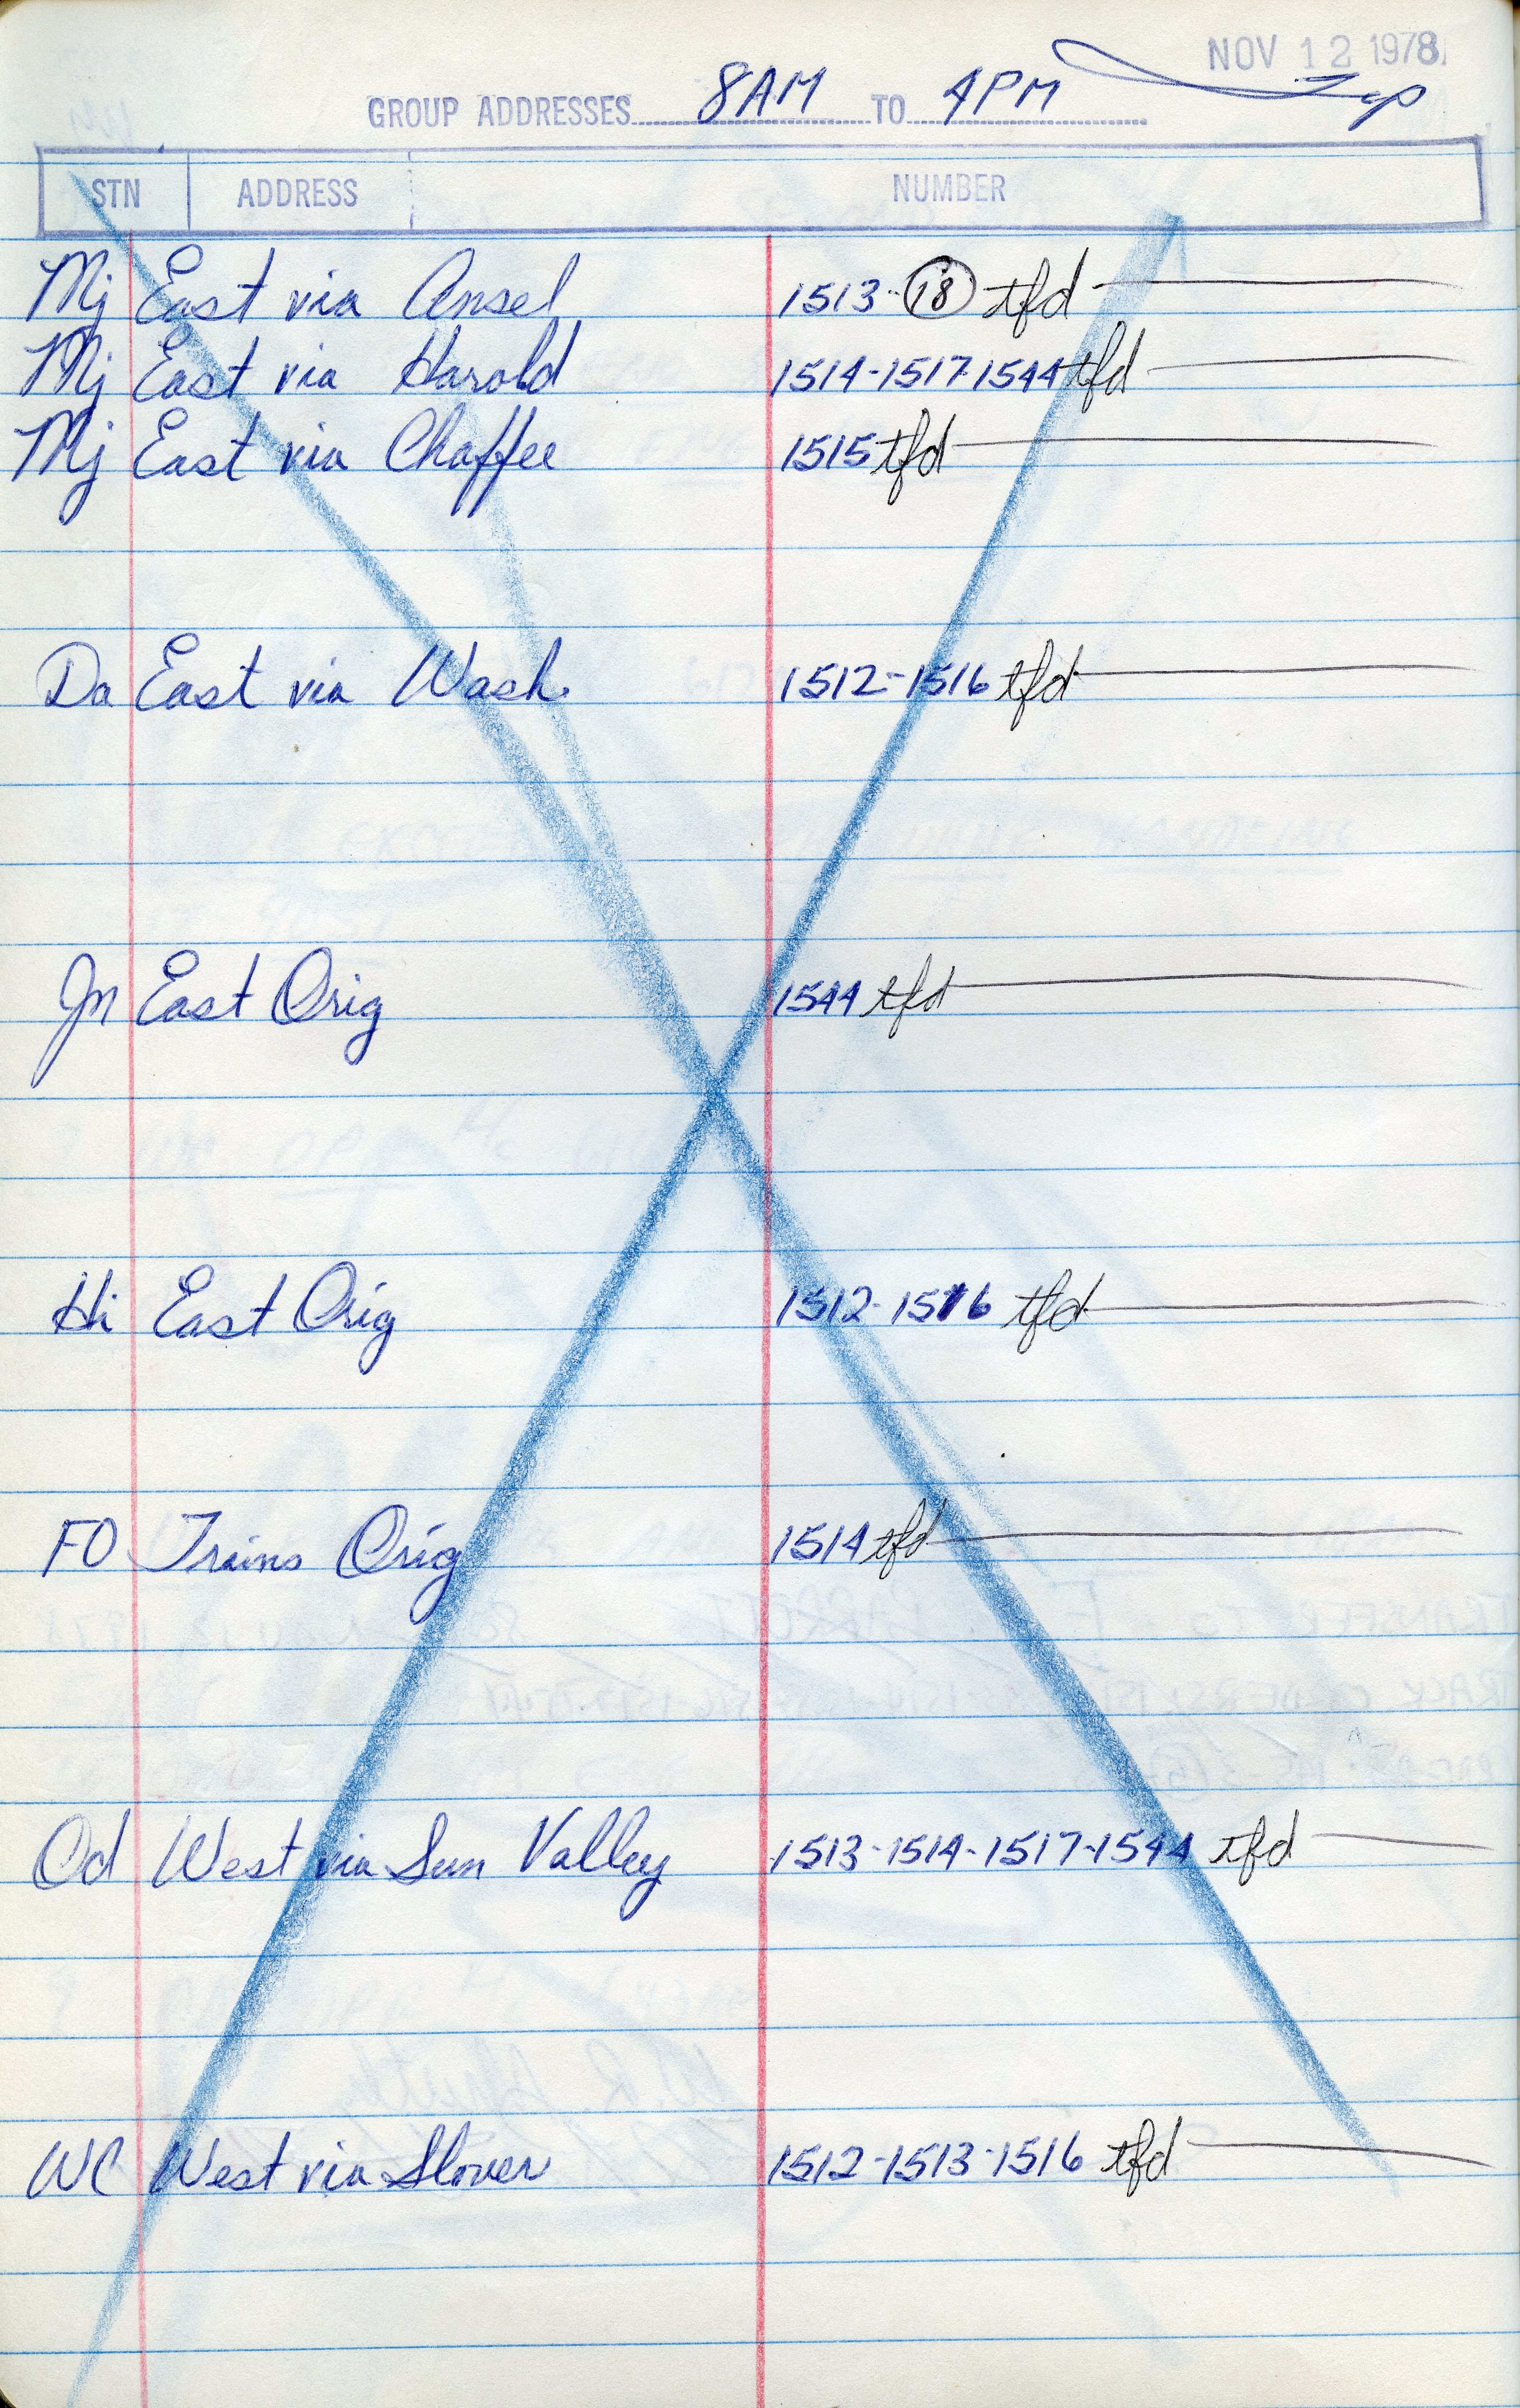 NOV 12 1978
GROUP ADDRESSES 8AM TO 4PM
STN ADDRESS NUMBER
Mj East via Ansel 1513-18 tfd
Mj East via Harold 1514-1517-1544 tfd
Mj East via Chaffee 1515 tfd
Da East via Wash. 1512-1516 tfd
Jn East Orig 1544 tfd
Hi East Orig 1512-1516 tfd
FO Trains Orig 1514 tfd
Cd West via Sun Valley 1513-1514-1517-1544 tfd
WC West via Slover 1512-1513-1516 tfd